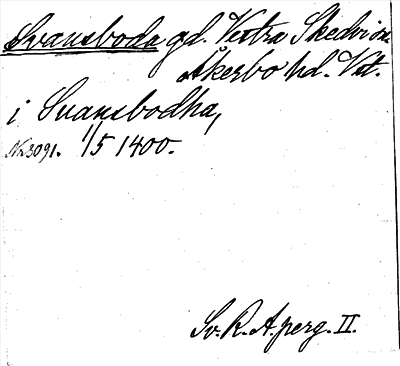 Svansboda gd. Vestra Skedvi sn
Åkerbo hd. Vstm.
i Suansbodha,
No 3091. 1/5 1400.
Sv. R. A. perg. II.